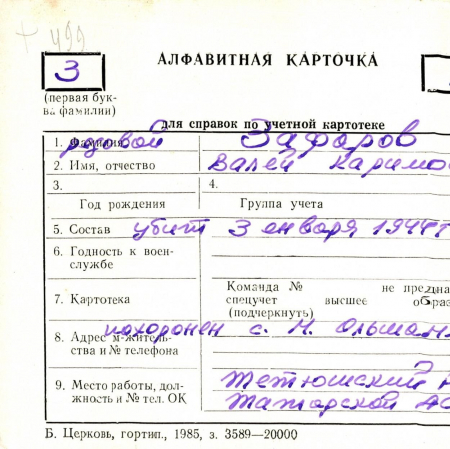 + 499
З
АЛФАВИТНАЯ КАРТОЧКА
(первая бук-
ва фамилии)
для справок по учетной картотеке
1. Фамилия рядовой Зафаров
2. Имя, отчество Валей Каримо
3. 4.
Год рождения Группа учета
5. Состав убит 3 января 1944г
6. Годность к воен-
службе
Команда № не предна
7. Картотека спецучет высшее образ
(подчеркнуть)
похоронен с. Н. Ольшан
8. Адрес м-житель-
ства и № телефона
9. Место работы, дол- Тетюшский
жность и № тел. ОК Татарской АС
Б. Церковь, гортип., 1985, з. 3589—20000